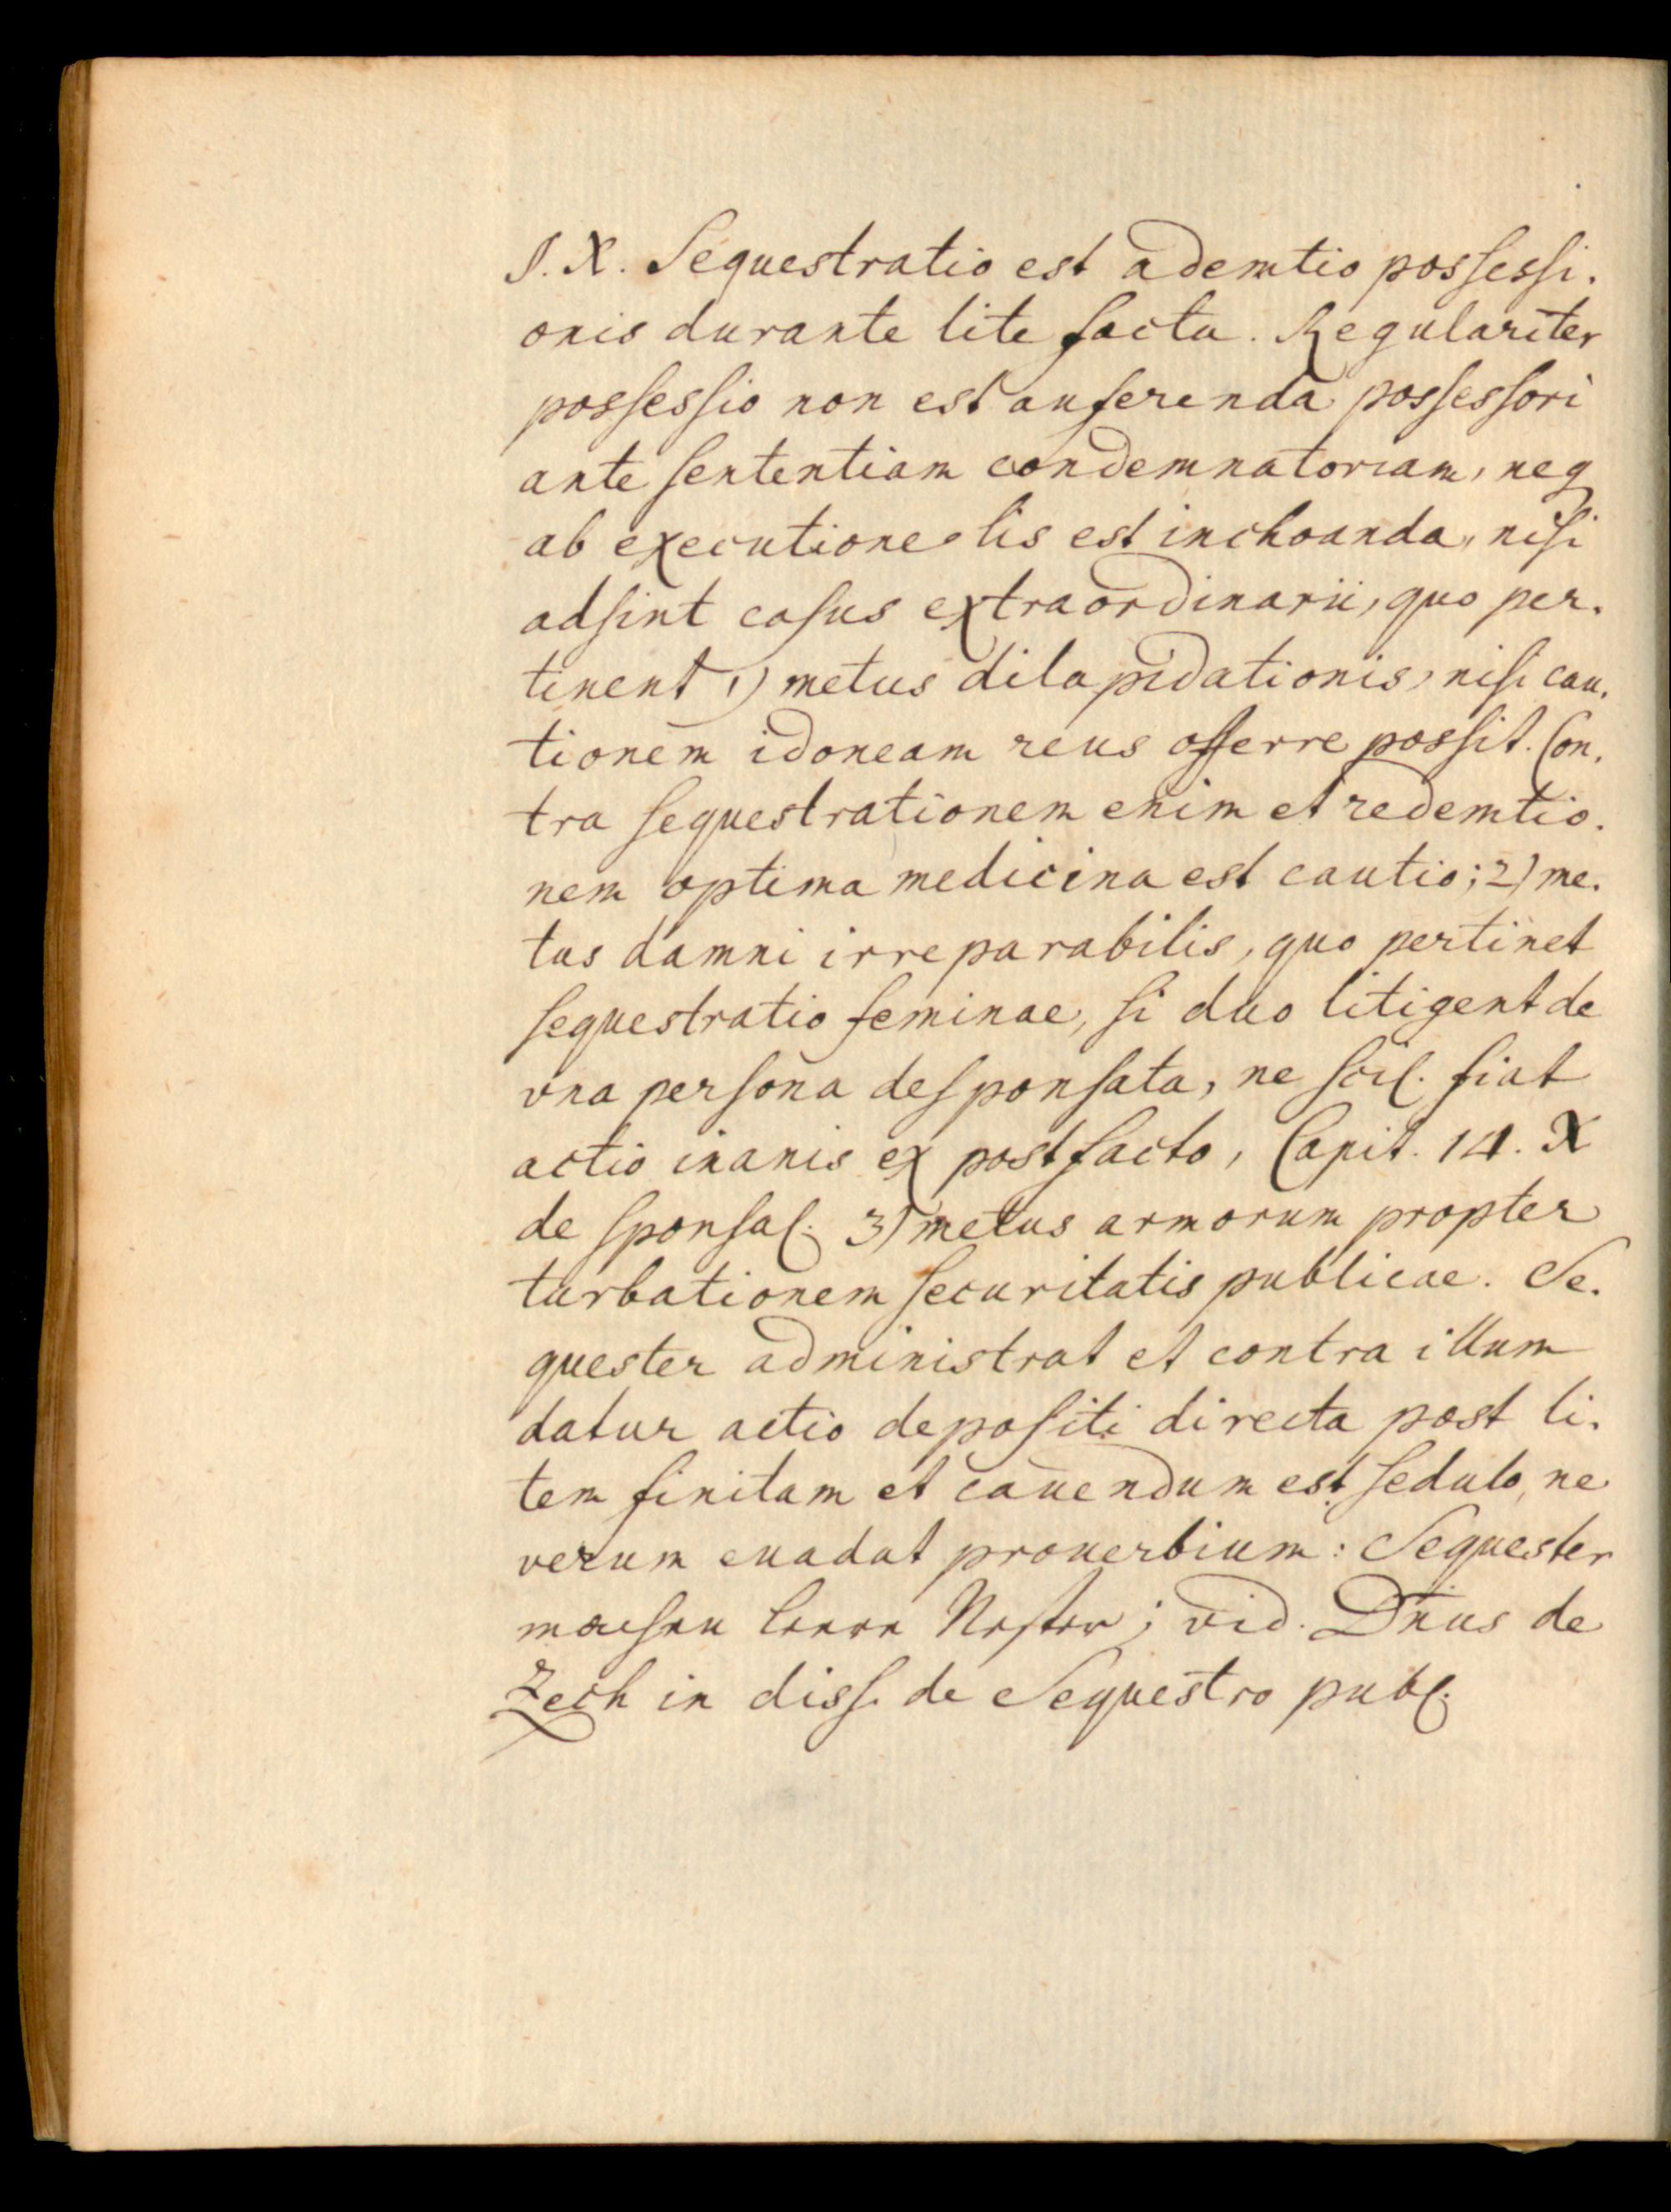 §. X. Sequestratio est ademtio possessi-
onis durante lite facta. Regulariter
possessio non est auferenda possessori
ante sententiam condemnatoriam, neq
ab executione lis est inchoanda, nisi
adsint casus extraordinarii, quo per-
tinent 1) metus dilapidationis, nisi cau-
tionem idoneam reus offerre possit. Con-
tra sequestrationem enim et redemtio-
nem optima medicina est cautio; 2) me-
tus damni irreparabilis, quo pertinet
sequestratio feminae, si duo litigent de
vna persona desponsata, ne scil. fiat
actio inanis ex post facto, Capit. 14. X
de sponsal. 3) metus armorum propter
turbationem securitatis publicae. Se-
quester administrat et contra illum
datur actio depositi directa post li-
tem finitam et cauendum est sedulo, ne
verum euadat prouerbium: Sequester
machen leere Nester; vid. Dnus de
Zech in diss. de Sequestro publ.